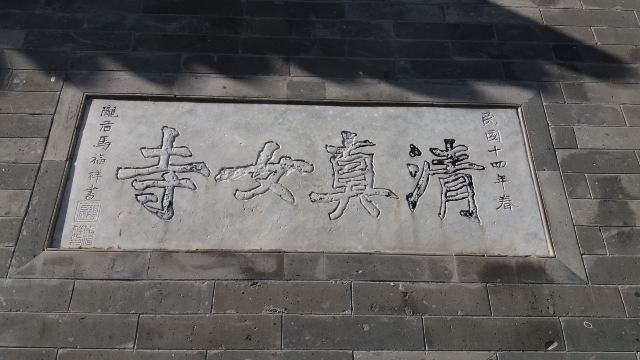 民國十四年春
清真女寺
隴右馬福祥書